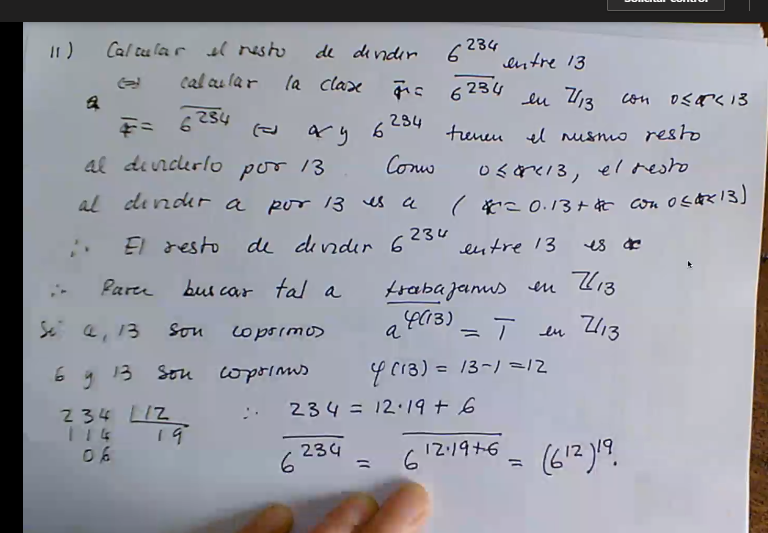 Solicitar control
11) Calcular el resto de dividir 6^234 entre 13
⇔ calcular la clase r̄ = \overline{6^234} en Z/13 con 0≤r<13
a
r̄ = \overline{6^234} ⇔ r y 6^234 tienen el mismo resto
al dividirlo por 13. Como 0≤r<13, el resto
al dividir a por 13 es a (r = 0.13 + r con 0≤r<13)
∴ El resto de dividir 6^234 entre 13 es r
∴ Para buscar tal a trabajamos en Z/13
Si a, 13 son coprimos a^φ(13) = \overline{1} en Z/13
6 y 13 son coprimos φ(13) = 13-1 = 12
234 |12 ∴ 234 = 12·19 + 6
114 19
06 \overline{6^234} = \overline{6^12·19+6} = (6^12)^19.